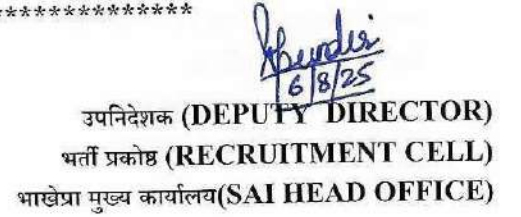 **************
6/8/25
उपनिदेशक (DEPUTY DIRECTOR)
भर्ती प्रकोष्ठ (RECRUITMENT CELL)
भाखेप्रा मुख्य कार्यालय(SAI HEAD OFFICE)